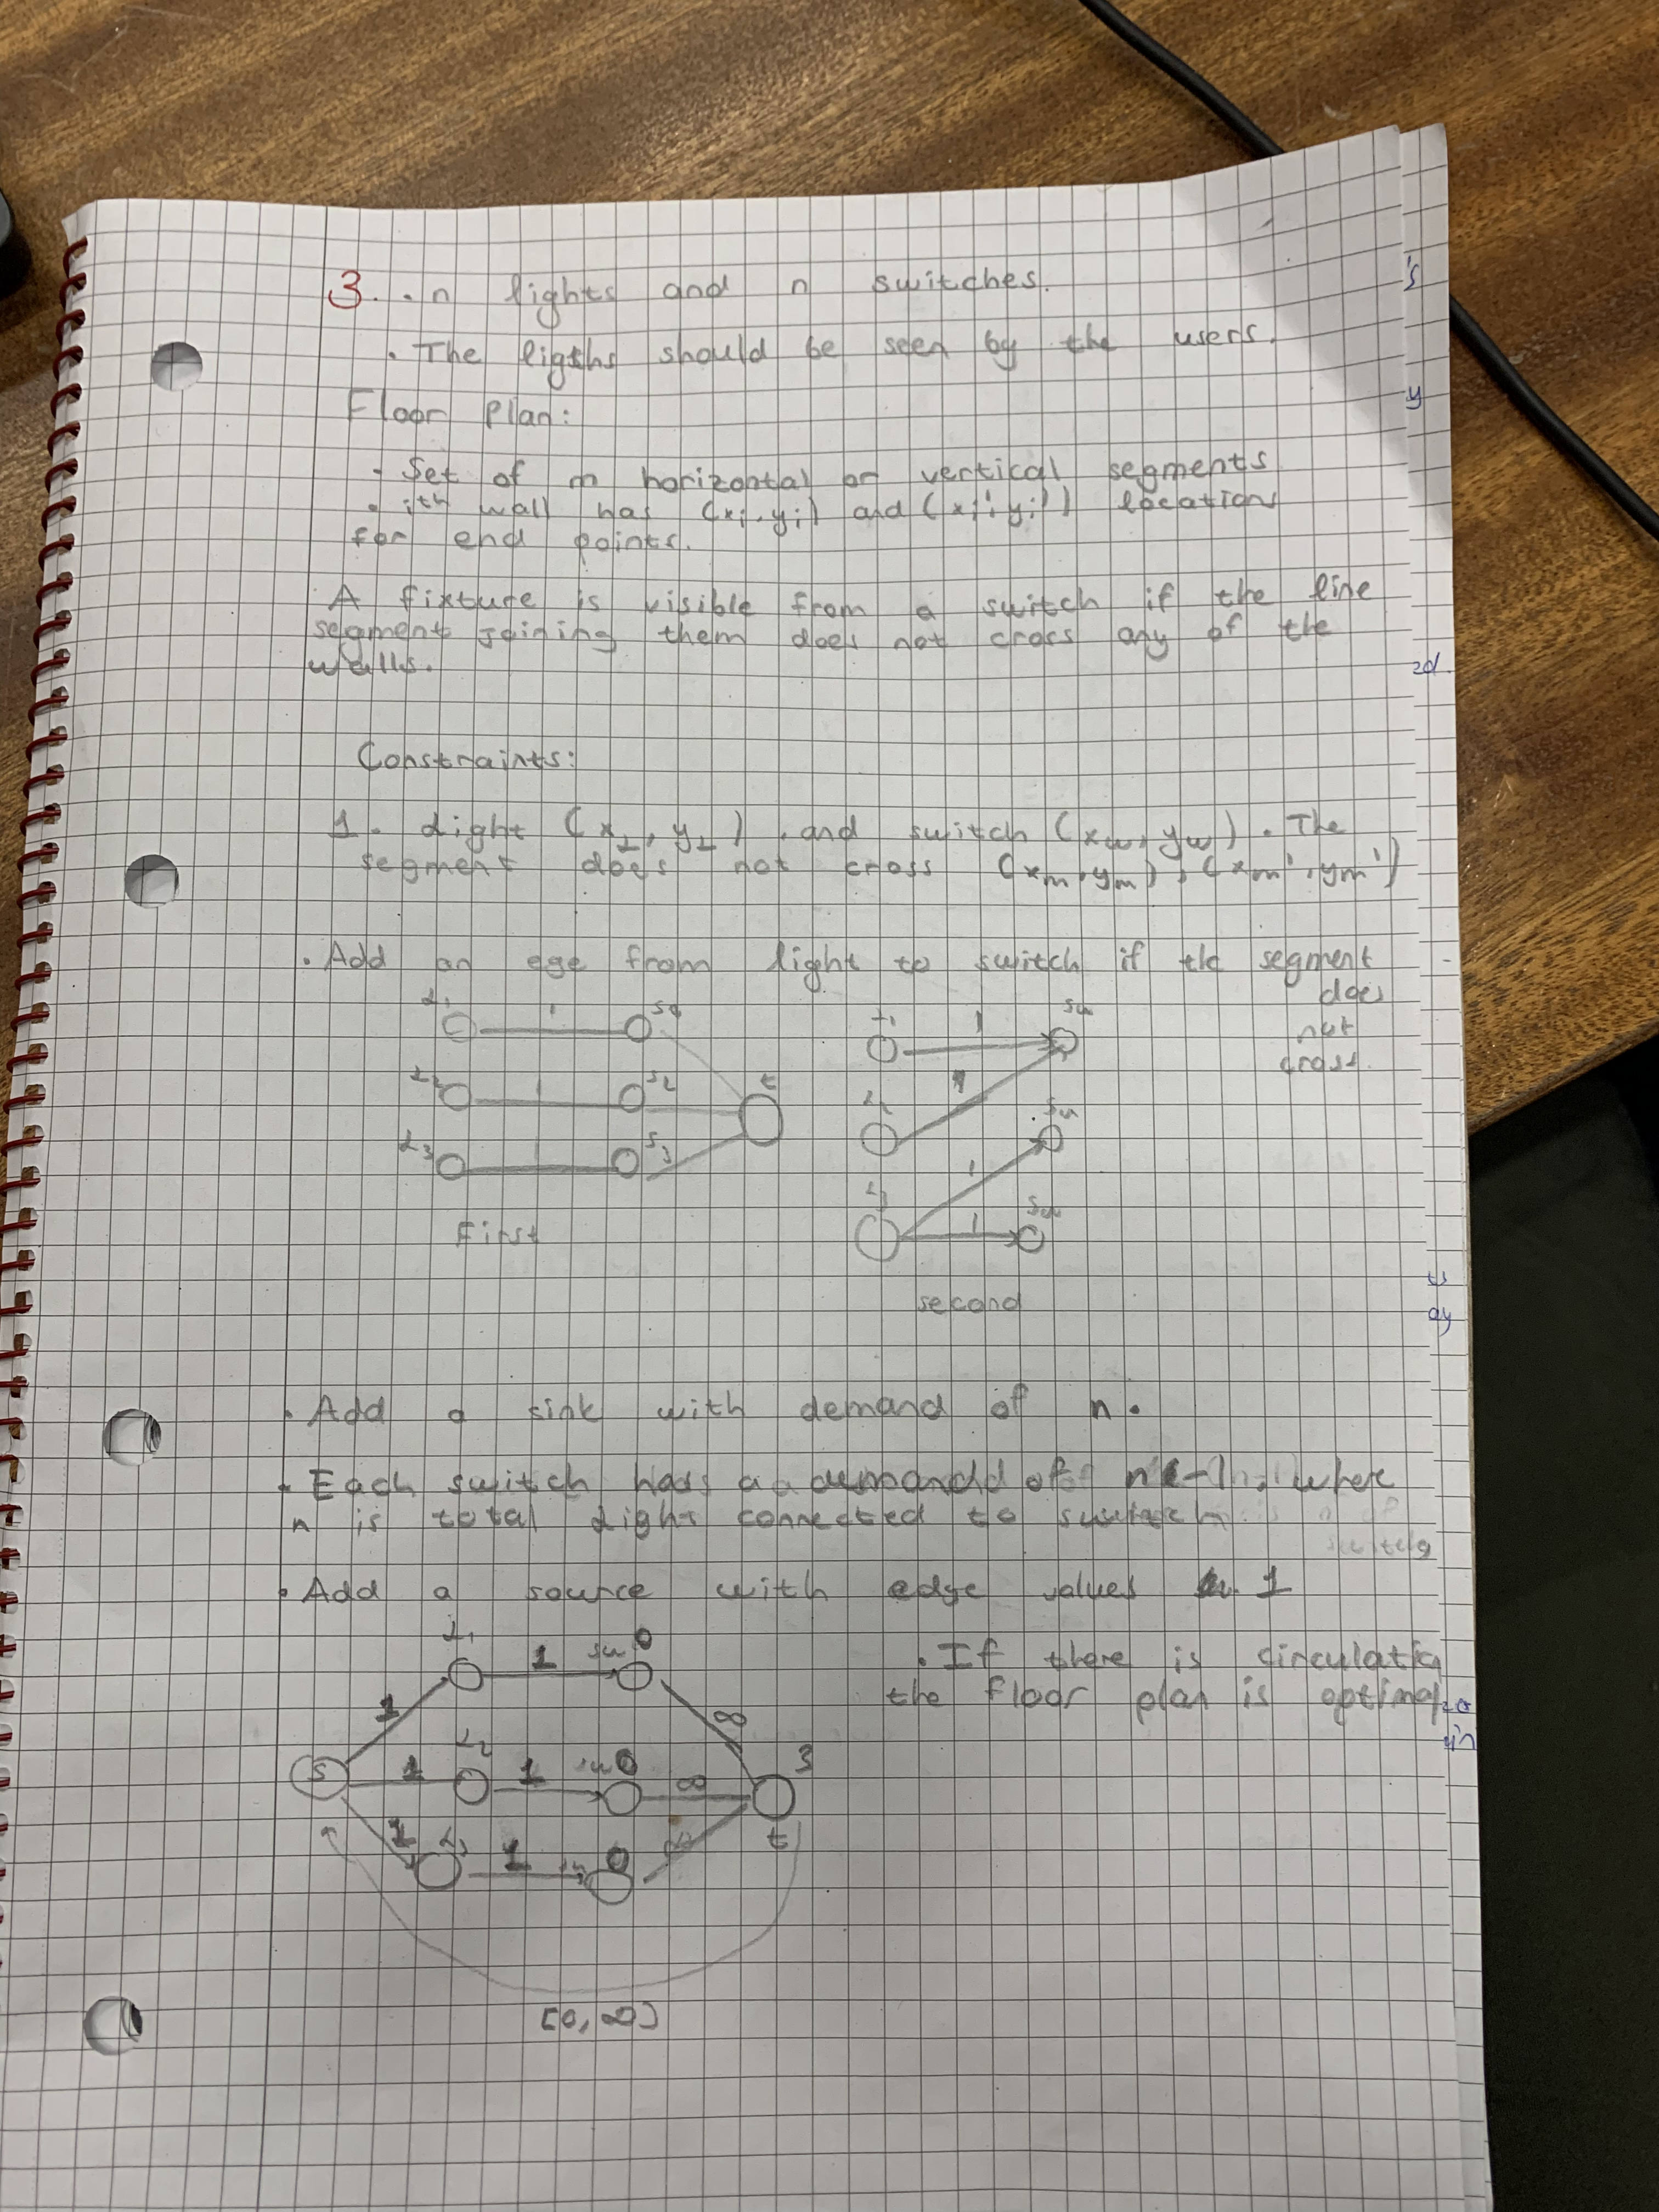 3. . n lights and n switches.
. The ligths should be seen by the users.
Floor Plan:
- Set of m horizontal or vertical segments
. ith wall has (xi, yi) and (xi', yi') locations
for end points.
A fixture is visible from a switch if the line
segment joining them does not cross any of the
walls.
Constraints:
1. Light (x1, y1), and switch (xw, yw). The
segment does not cross (xm, ym), (xm', ym')
. Add an ege from light to switch if the segment
does
not
cross.
L1 1
L2 1 S2 t
L3 1 S3
First
1 Sw
1
1 Sw
1 Sw
second
. Add a sink with demand of n.
. Each switch has a demand of n-1, where
n is total light connected to switch
. Add a source with edge values 1
. If there is circulation
the floor plan is optimal
L1 1 sw 0
1 ∞
L2 3
S 1 1 sw 0 ∞ t
1 L3 1 sw 0 ∞
[0, ∞]
's
y